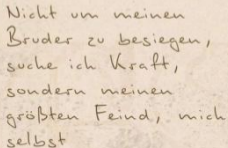 Nicht um meinen
Bruder zu besiegen,
suche ich Kraft,
sondern meinen
größten Feind, mich
selbst